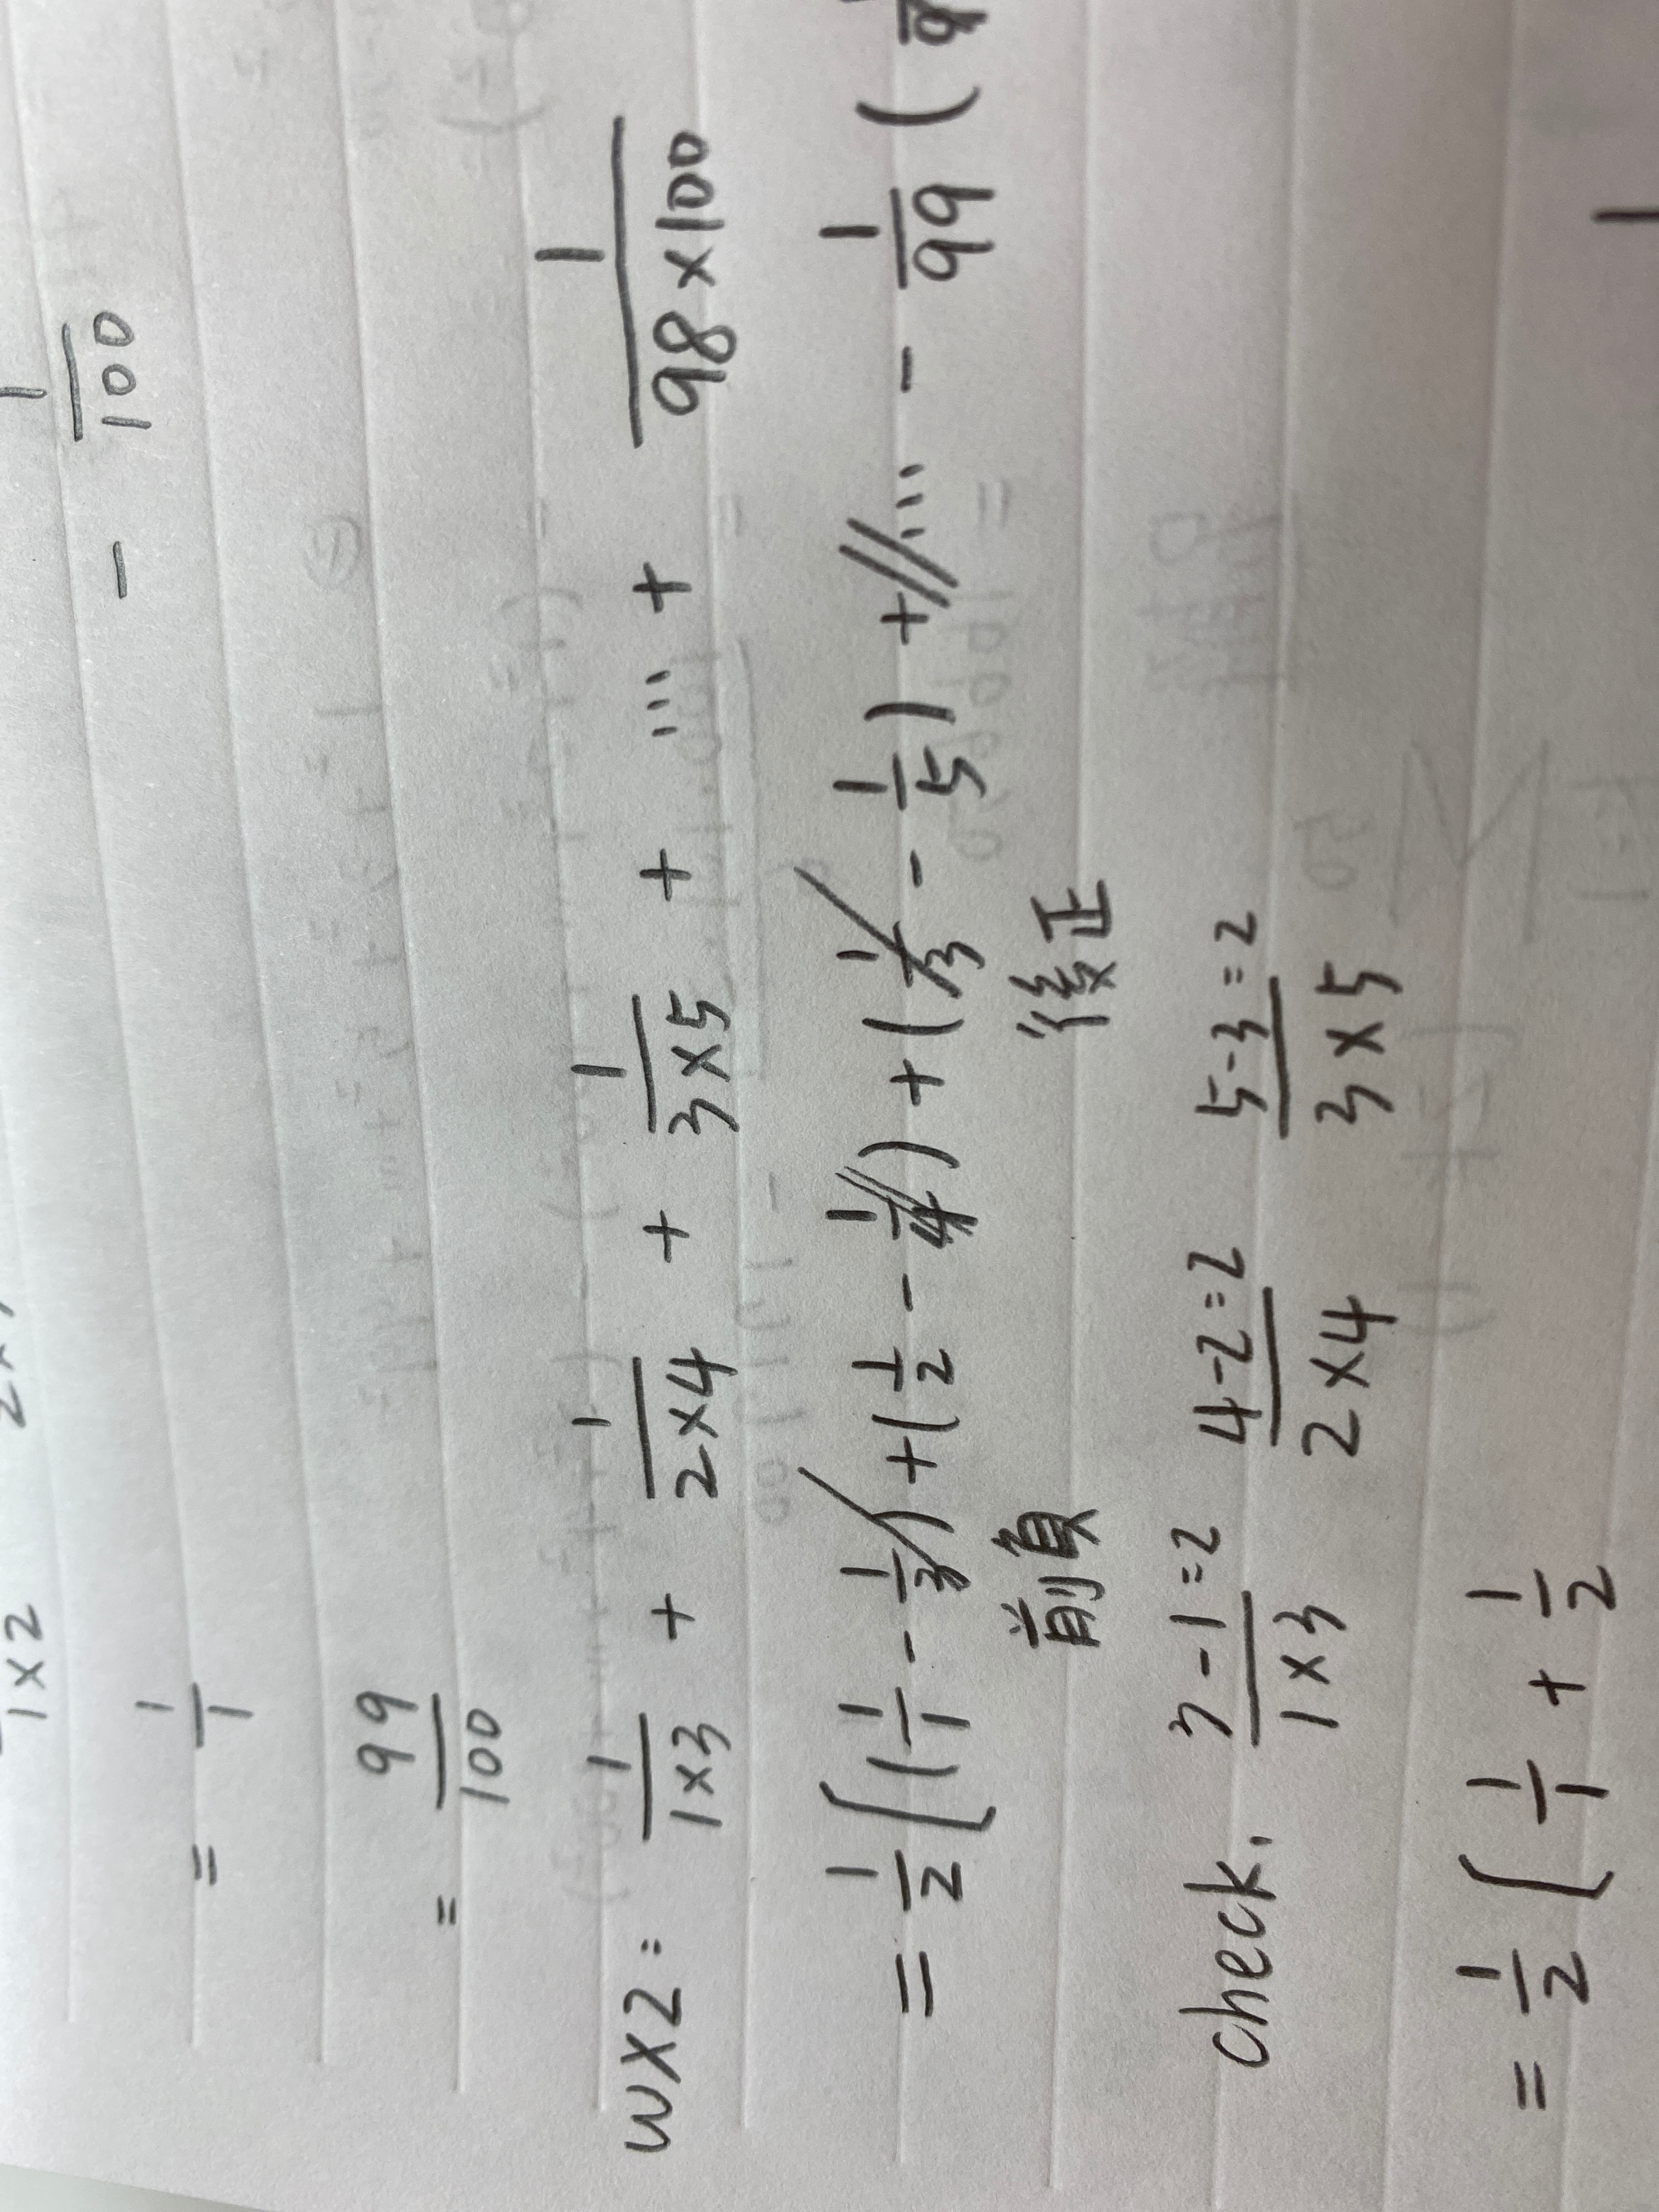 1×2
1/1 - 1/100
= 99/100
WX2: 1/(1×3) + 1/(2×4) + 1/(3×5) + ... + 1/(98×100)
= 1/2 [(1/1 - 1/3) + (1/2 - 1/4) + (1/3 - 1/5) + ... - 1/99 (
前負 後正
check. 3-1=2/1×3 4-2=2/2×4 5-3=2/3×5
= 1/2 [ 1/1 + 1/2